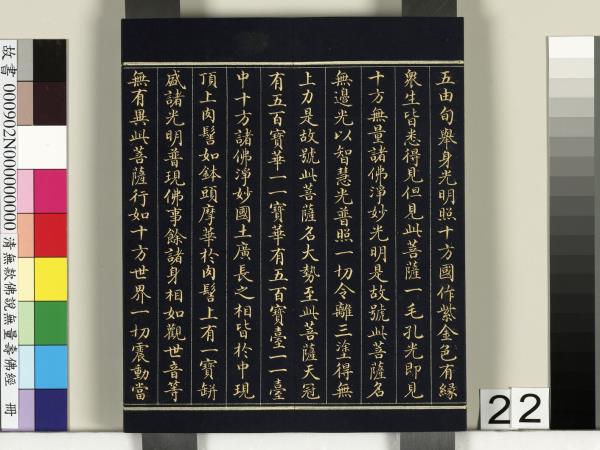 五由旬舉身光明照十方國作紫金色有緣
衆生皆悉得見但見此菩薩一毛孔光即見
十方無量諸佛淨妙光明是故號此菩薩名
無邊光以智慧光普照一切令離三塗得無
上力是故號此菩薩名大勢至此菩薩天冠
有五百寶華一一寶華有五百寶臺一一臺
中十方諸佛淨妙國土廣長之相皆於中現
頂上肉髻如鉢頭摩華於肉髻上有一寶缾
盛諸光明普現佛事餘諸身相如觀世音等
無有異此菩薩行如十方世界一切震動當
故書 000902N000000000 清無款佛說無量壽佛經 冊
22